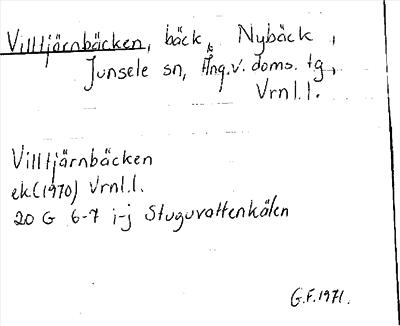 Villtjärnbäcken, bäck, Nybäck,
Junsele sn, Ång.v. doms. tg,
Vrnl.l.
Villtjärnbäcken
ek (1970) Vrnl.l.
20 G 6-7 i-j Stuguvattenkälen
G.F. 1971.